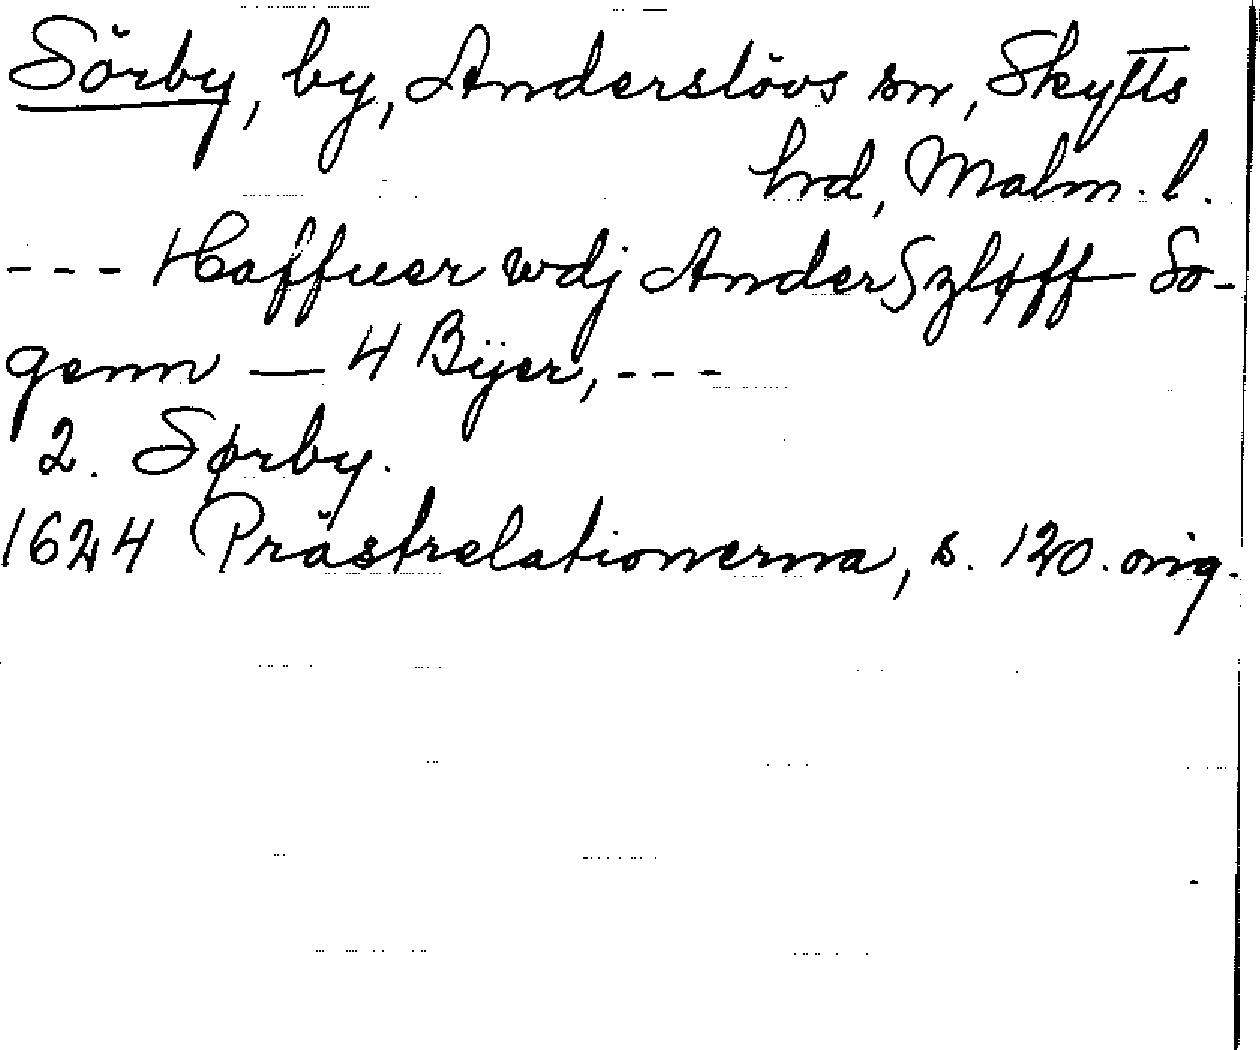 Sörby, by, Anderslövs sn, Skytts
hrd, Malm. l.
--- Haffuer wdj Anderſzløff So-
genn — 4 Bÿer, ---
2. Sørby.
1624 Prästrelationerna, s. 120. orig.